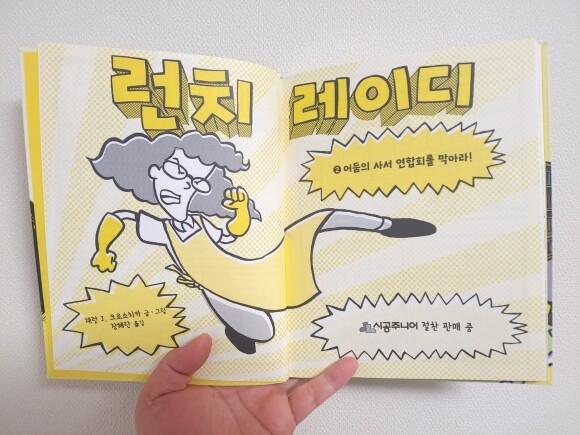 런치 레이디
❷ 어둠의 사서 연합회를 막아라!
재럿 J. 크로소치카 글·그림
장혜란 옮김
시공주니어 절찬 판매 중